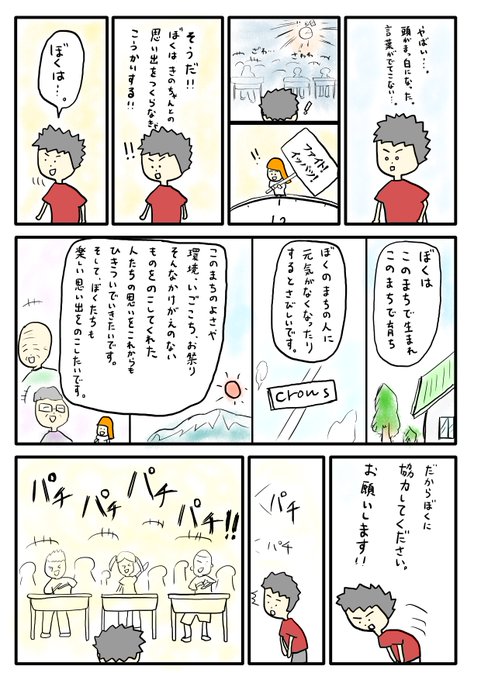 やばい…。
頭がまっ白になった。
言葉がでてこない…。
ざわ…
ざわ…
!
!!
ファイト!
イッパツ!
12
そうだ!!
ぼくはきのちゃんとの
思い出をつくらなきゃ
こうかいする!!
!!
ぼくは…。
ぼくは
このまちで生まれ
このまちで育ち
ぼくのまちの人に
元気がなくなったり
するとさびしいです。
Crows
このまちのよさや
環境、いごこち、お祭り
そんなかけがえのない
ものをのこしてくれた
人たちの思いをこれからも
ひきついでいきたいです。
そして、ぼくたちも
楽しい思い出をのこしたいです。
だからぼくに
協力してください。
お願いします!!
パチ
パチ
パチ
パチ
パチ
パチ!!